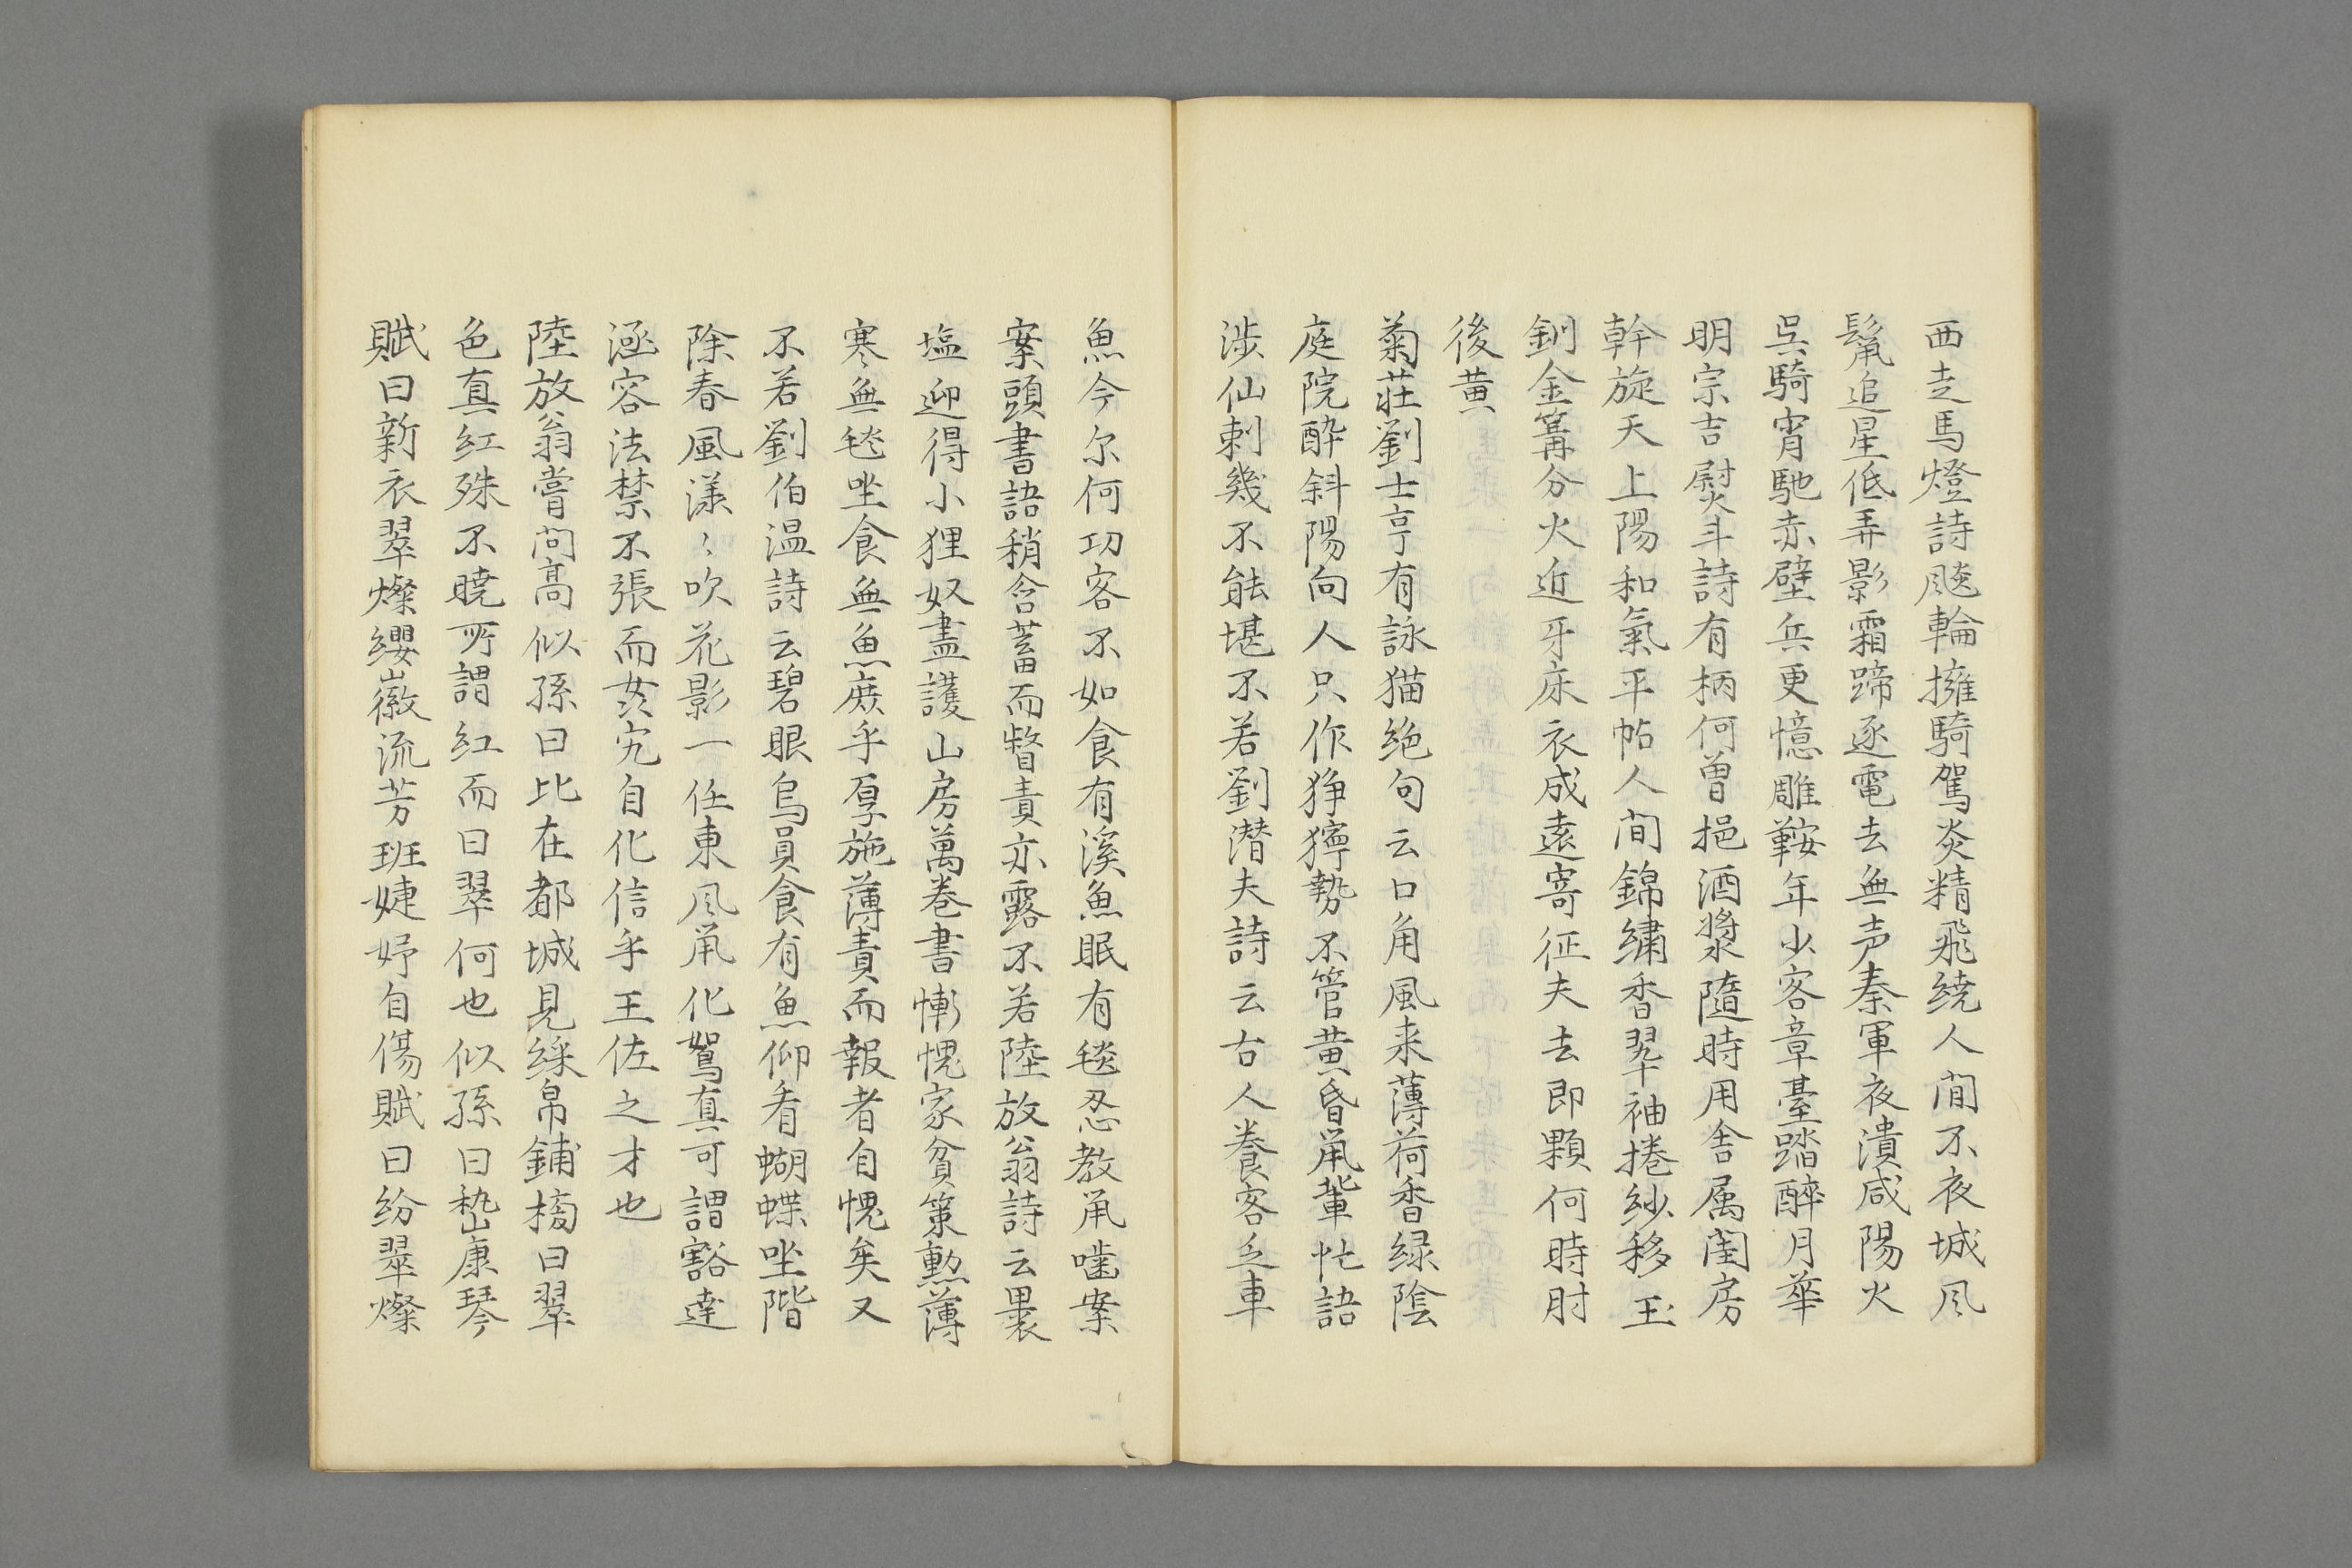 西走馬燈詩飈輪擁騎駕炎精飛繞人間不夜城风
鬣追星低弄影霜蹄逐電去無声秦軍夜潰咸陽火
吴騎宵馳赤壁兵更憶雕鞍年少客章臺踏醉月華
明宗吉熨斗詩有柄何曽挹酒漿隨時用舎属閨房
幹旋天上陽和氣平帖人間錦繡香翠袖捲紗移玉
釧金篝分火近牙床衣成遠寄征夫去即顆何時肘
後黄
菊莊劉士亨有詠猫绝句云口角風来薄荷香緑陰
庭院酔斜陽向人只作狰獰勢不管黄昏鼠軰忙語
渉仙刺幾不能堪不若劉潜夫詩云古人飬客乏車
魚今尔何功客不如食有溪魚眠有毯忍教鼠囓案
案頭書語稍含蓄而督責亦露不若陸放翁詩云裹
塩迎得小狸奴盡護山房萬巻書慚愧家貧策勲薄
寒無毯坐食無魚庶乎厚施薄責而報者自愧矣又
不若劉伯温詩云碧眼烏員食有魚仰看蝴蝶坐階
除春風漾〻吹花影一任東风鼠化鴽真可謂豁達
涵容法禁不張而奸宄自化信乎王佐之才也
陸放翁嘗问高似孫曰比在都城見綵帛鋪榜曰翠
色真红殊不暁所謂红而曰翠何也似孫曰嵇康琴
賦曰新衣翠燦纓徽流芳班婕妤自傷賦曰纷翠燦